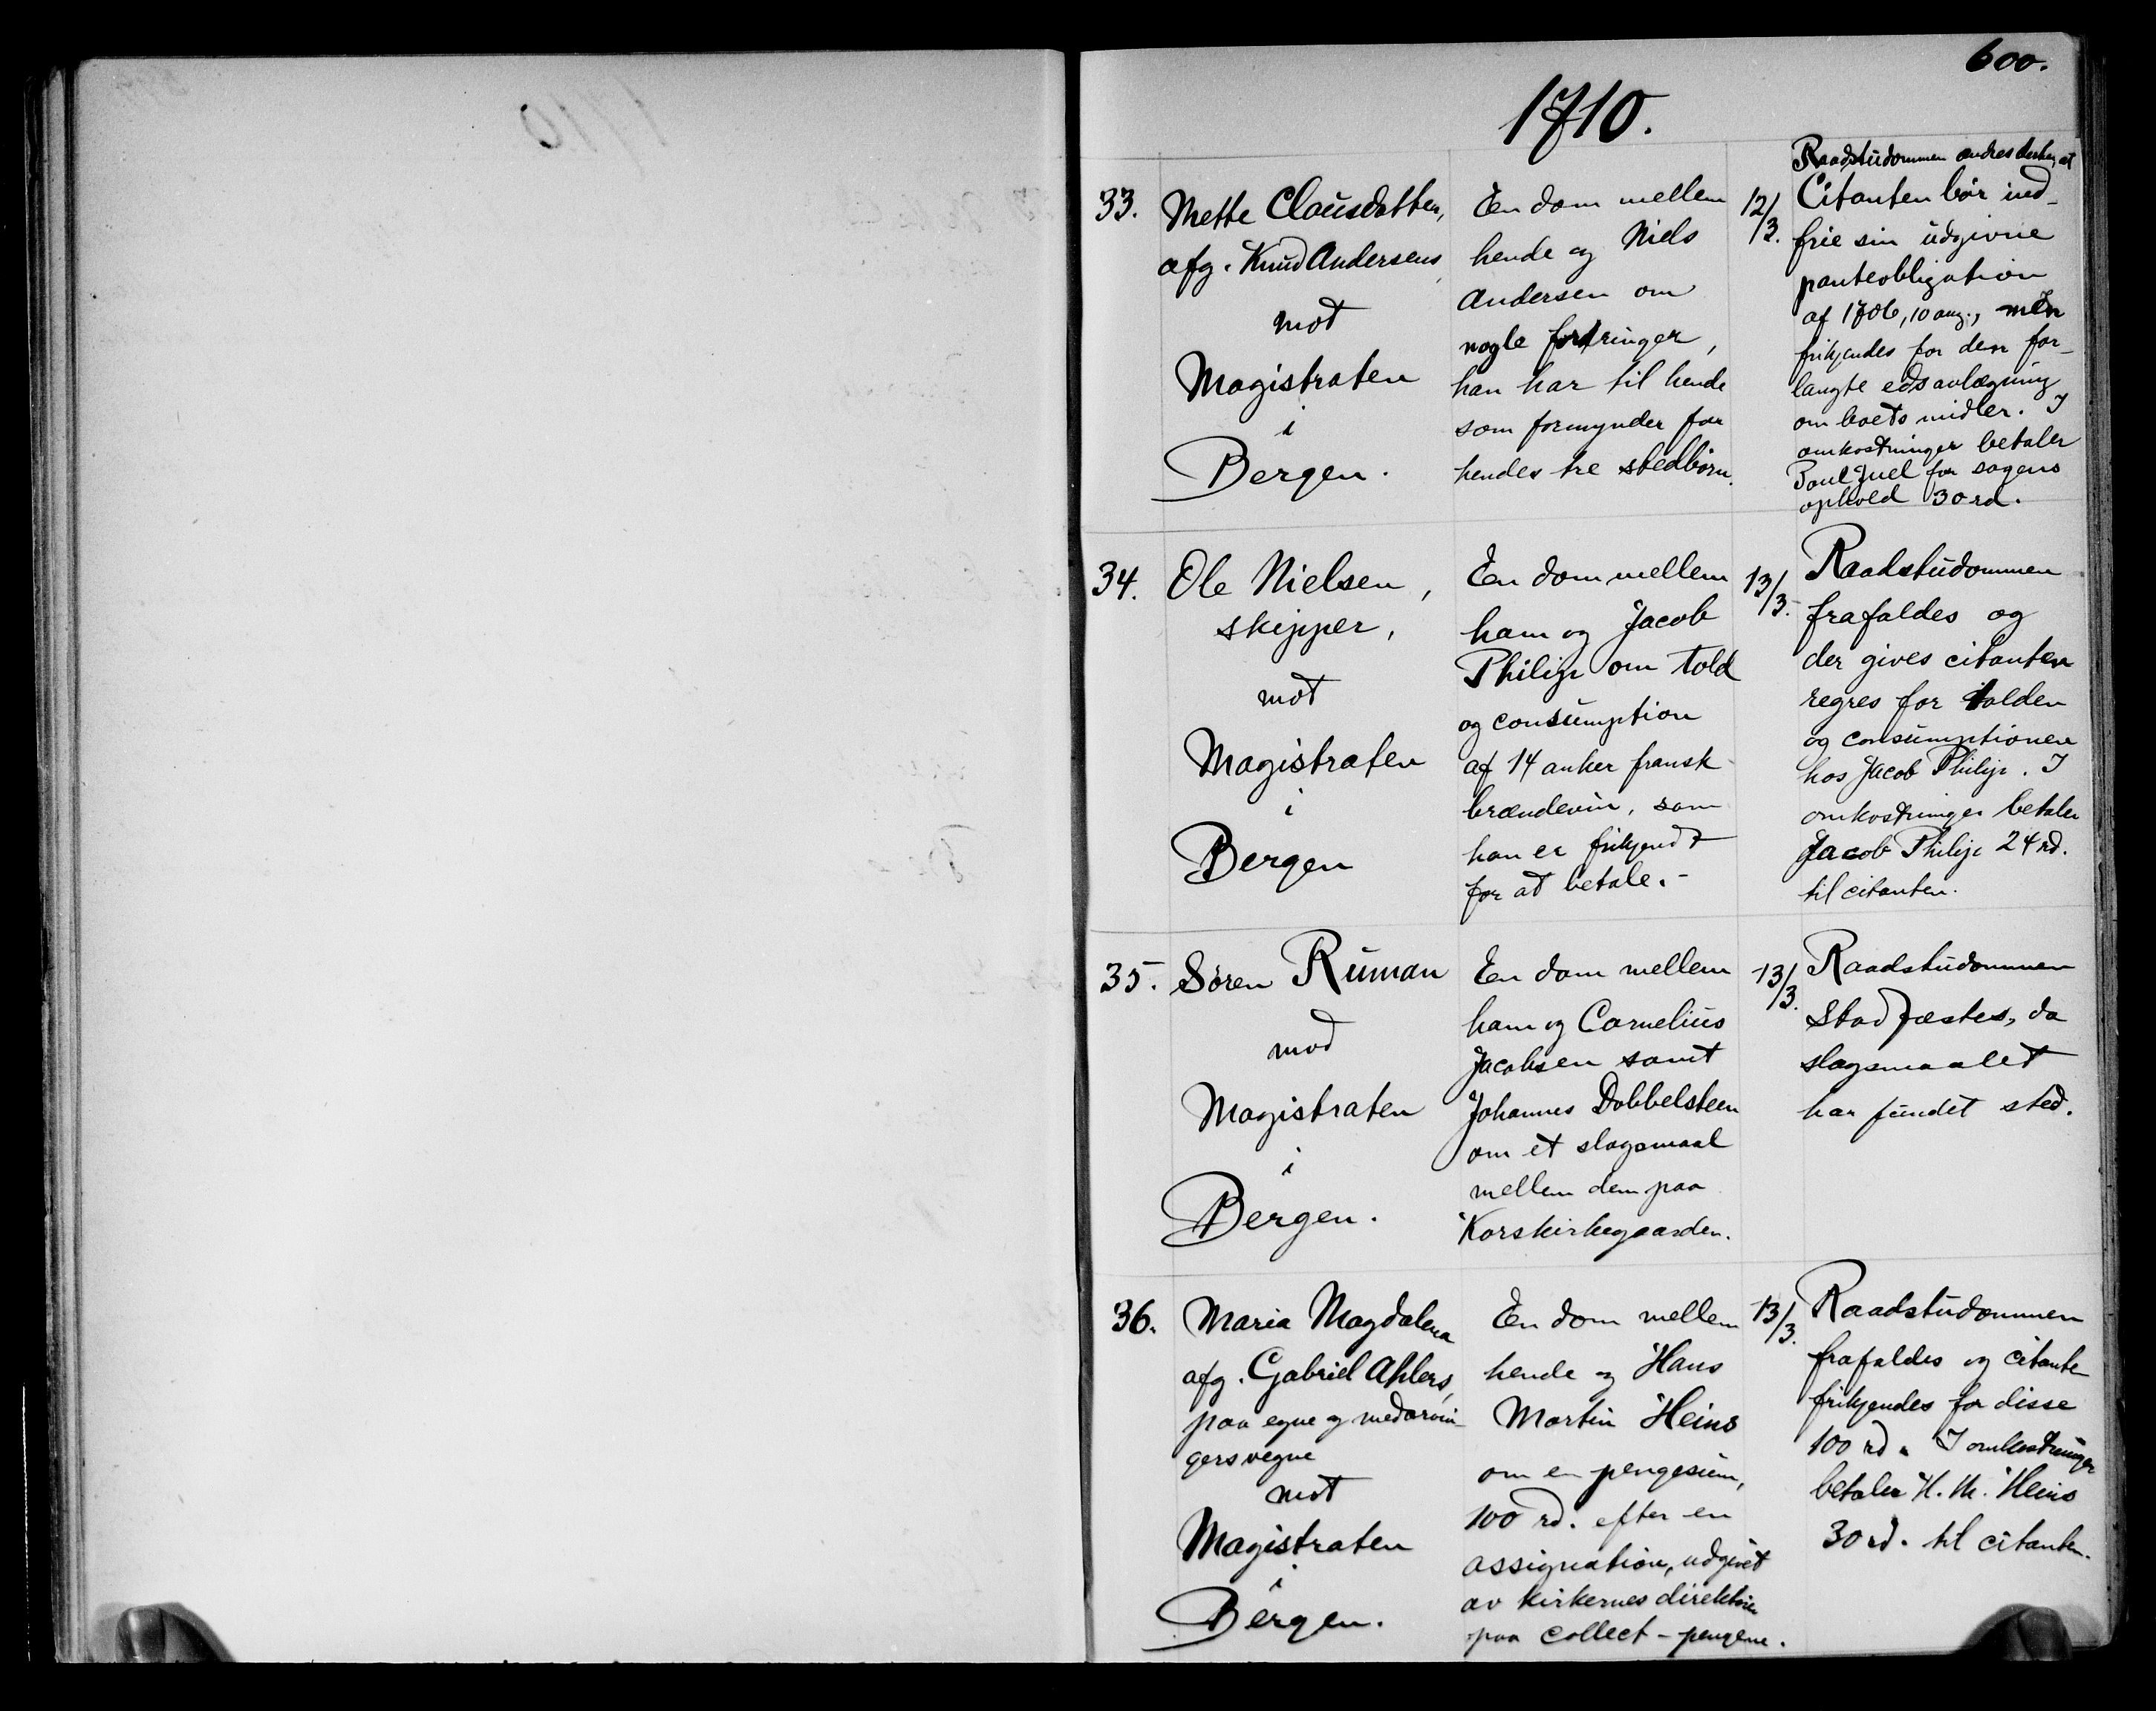 600.
1710.
33.
Mette Clausdatter,
afg. Knud Andersens,
mot
Magistraten
i
Bergen.
En dom mellem
hende og Niels
Andersen om
nogle fordringer,
han har til hende
som formynder for
hendes tre stedbörn.
12/3.
Raadstudommen ændres derhen, at
Citanten bör ind-
frie sin udgivne
panteobligation
af 1706, 10 aug., men
frikjendes for den for-
langte edsavlægning
om boets midler. I
omkostninger betaler
Poul Juel for sagens
ophold 30 rd.
34.
Ole Nielsen,
skipper,
mot
Magistraten
i
Bergen
En dom mellem
ham og Jacob
Philip om told
og consumption
af 14 anker fransk
brændevin, som
han er frikjendt
for at betale.-
13/3.
Raadstudommen
frafaldes og
der gives citanten
regres for tolden
og consumptionen
hos Jacob Philip. I
omkostninger betaler
Jacob Philip 24 rd.
til citanten.
35.
Sören Ruman
mod
Magistraten
i
Bergen.
En dom mellem
ham og Cornelius
Jacobsen samt
Johannes Dobbelsteen
om et slagsmaal
mellem dem paa
Korskirkegaarden.
13/3.
Raadstudommen
Stadfæstes, da
slagsmaalet
har fundet sted.
36.
Maria Magdalena
afg. Gabriel Ahlers,
paa egne og medarvin-
gers vegne
mot
Magistraten
i
Bergen.
En dom mellem
hende og Hans
Martin Heins
om en pengesum,
100 rd. efter en
assignation, udgivet
av kirkernes direktion
paa collect-pengene.
13/3.
Raadstudommen
frafaldes og citanten
frikjendes for disse
100 rd. I omkostninger
betaler H. M. Heins
30 rd. til citanten.